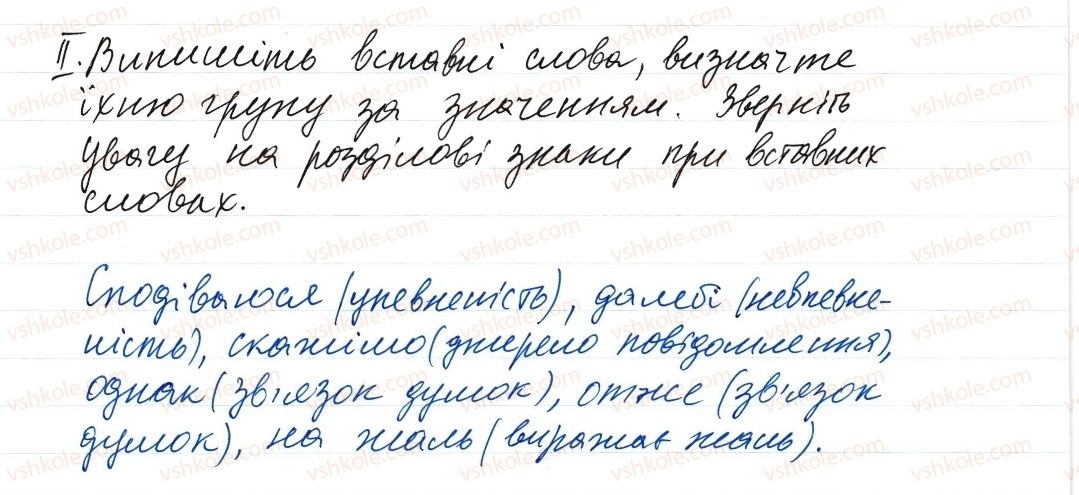 II. Випишіть вставні слова, визначте
їхню групу за значенням. Зверніть
увагу на розділові знаки при вставних
словах.
Сподіваюся (упевненість), далебі (невпевне-
ність), скажімо (джерело повідомлення),
однак (зв'язок думок), отже (зв'язок
думок), на жаль (виражає жаль).